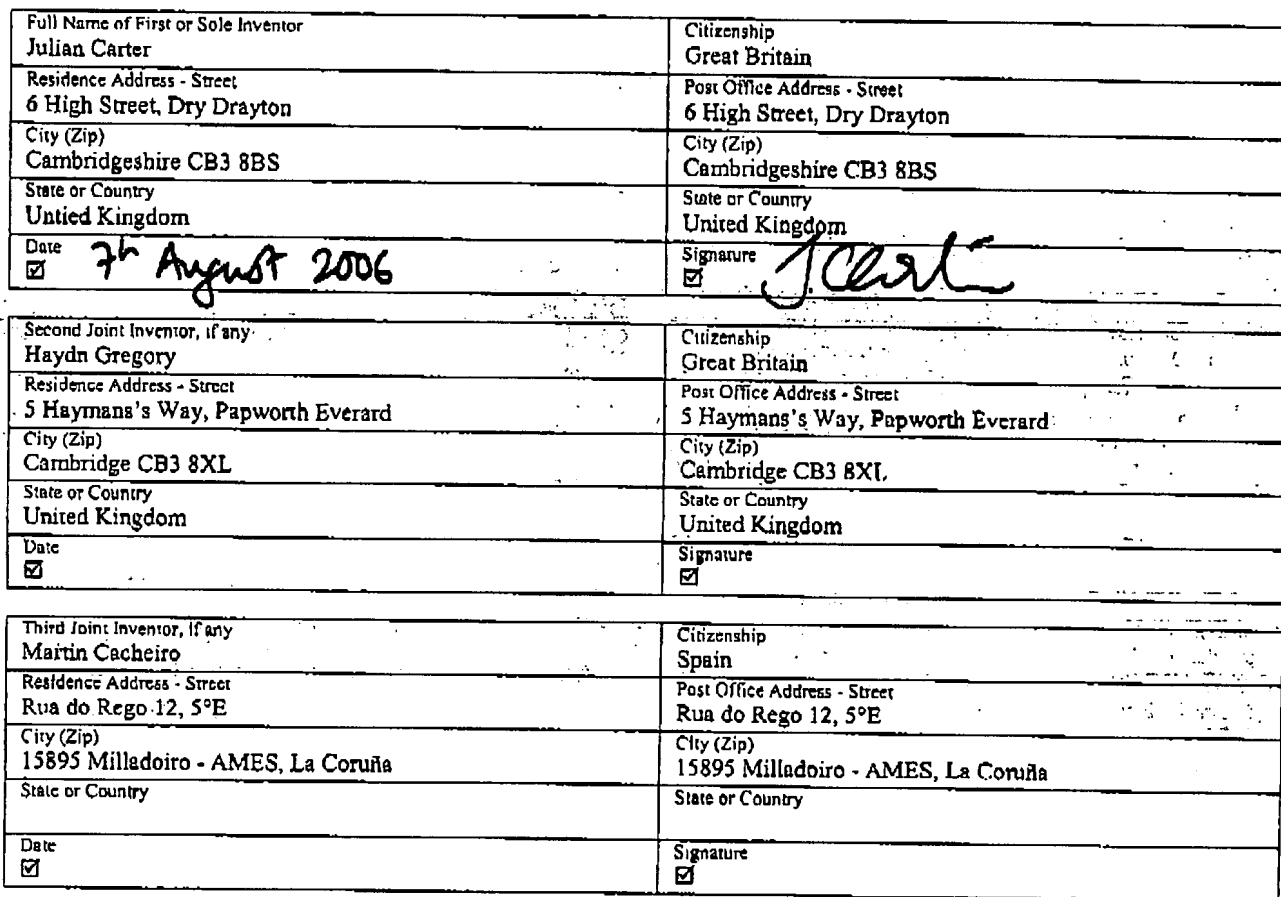 Full Name of First or Sole Inventor
Julian Carter
Citizenship
Great Britain
Residence Address - Street
6 High Street, Dry Drayton
Post Office Address - Street
6 High Street, Dry Drayton
City (Zip)
Cambridgeshire CB3 8BS
City (Zip)
Cambridgeshire CB3 8BS
State or Country
Untied Kingdom
State or Country
United Kingdom
Date
☑ 7th August 2006
Signature
☑
Second Joint Inventor, if any
Haydn Gregory
Citizenship
Great Britain
Residence Address - Street
5 Haymans's Way, Papworth Everard
Post Office Address - Street
5 Haymans's Way, Papworth Everard
City (Zip)
Cambridge CB3 8XL
City (Zip)
Cambridge CB3 8XL
State or Country
United Kingdom
State or Country
United Kingdom
Date
☑
Signature
☑
Third Joint Inventor, if any
Martin Cacheiro
Citizenship
Spain
Residence Address - Street
Rua do Rego 12, 5°E
Post Office Address - Street
Rua do Rego 12, 5°E
City (Zip)
15895 Milladoiro - AMES, La Coruña
City (Zip)
15895 Milladoiro - AMES, La Coruña
State or Country
State or Country
Date
☑
Signature
☑